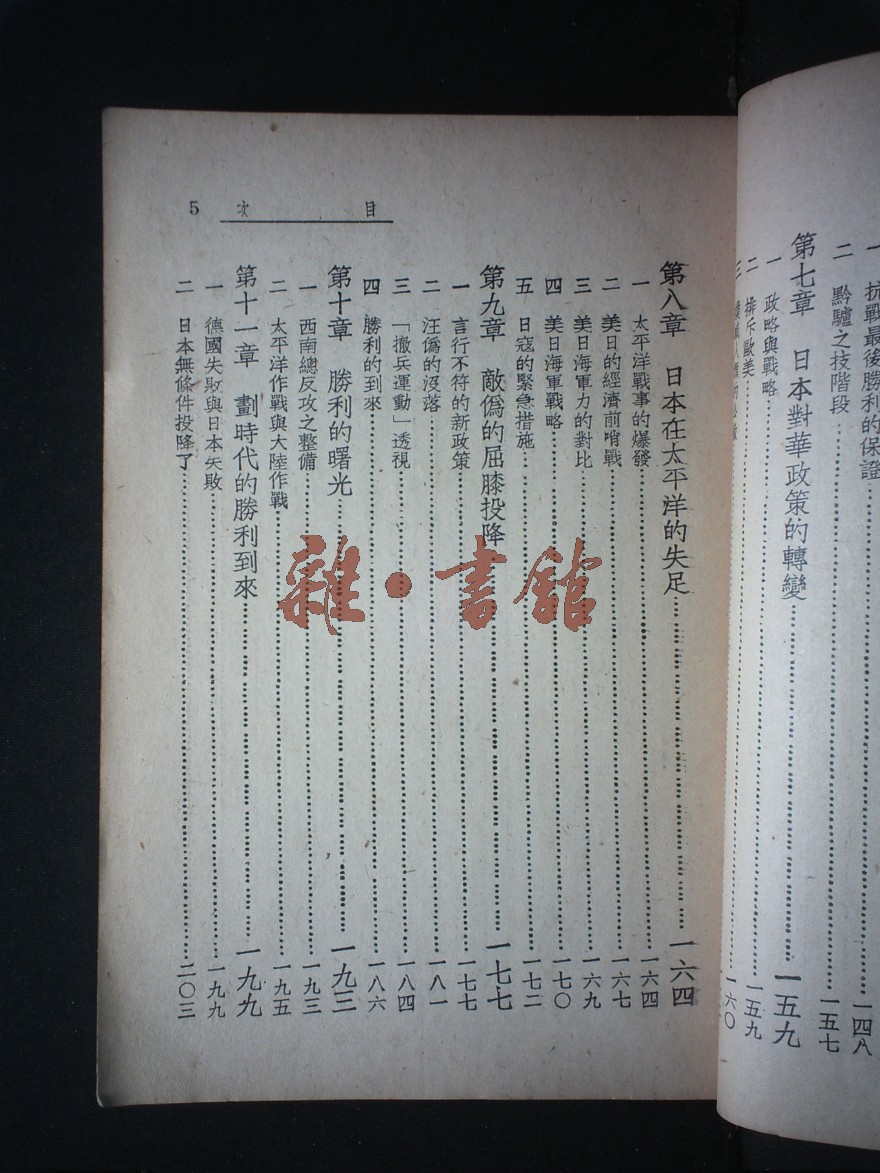 一　抗戰最後勝利的保證…………一四八
二　黔驢之技階段…………一五七
第七章　日本對華政策的轉變…………一五九
一　政略與戰略…………一五九
二　排斥歐美…………一六〇
三
目次　5
第八章　日本在太平洋的失足…………一六四
一　太平洋戰事的爆發…………一六四
二　美日的經濟前哨戰…………一六七
三　美日海軍力的對比…………一六九
四　美日海軍戰略…………一七〇
五　日寇的緊急措施…………一七二
第九章　敵僞的屈膝投降…………一七七
一　言行不符的新政策…………一七七
二　汪僞的沒落…………一八一
三　「撤兵運動」透視…………一八四
四　勝利的到來…………一八六
第十章　勝利的曙光…………一九三
一　西南總反攻之整備…………一九三
二　太平洋作戰與大陸作戰…………一九五
第十一章　劃時代的勝利到來…………一九九
一　德國失敗與日本失敗…………一九九
二　日本無條件投降了…………二〇三
雜·書館